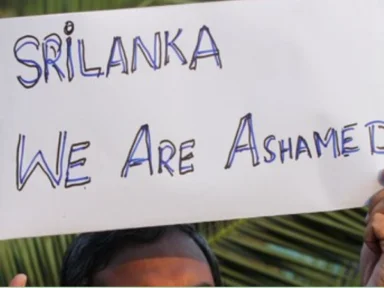 SRiLANKA
WE ARE ASHAMED